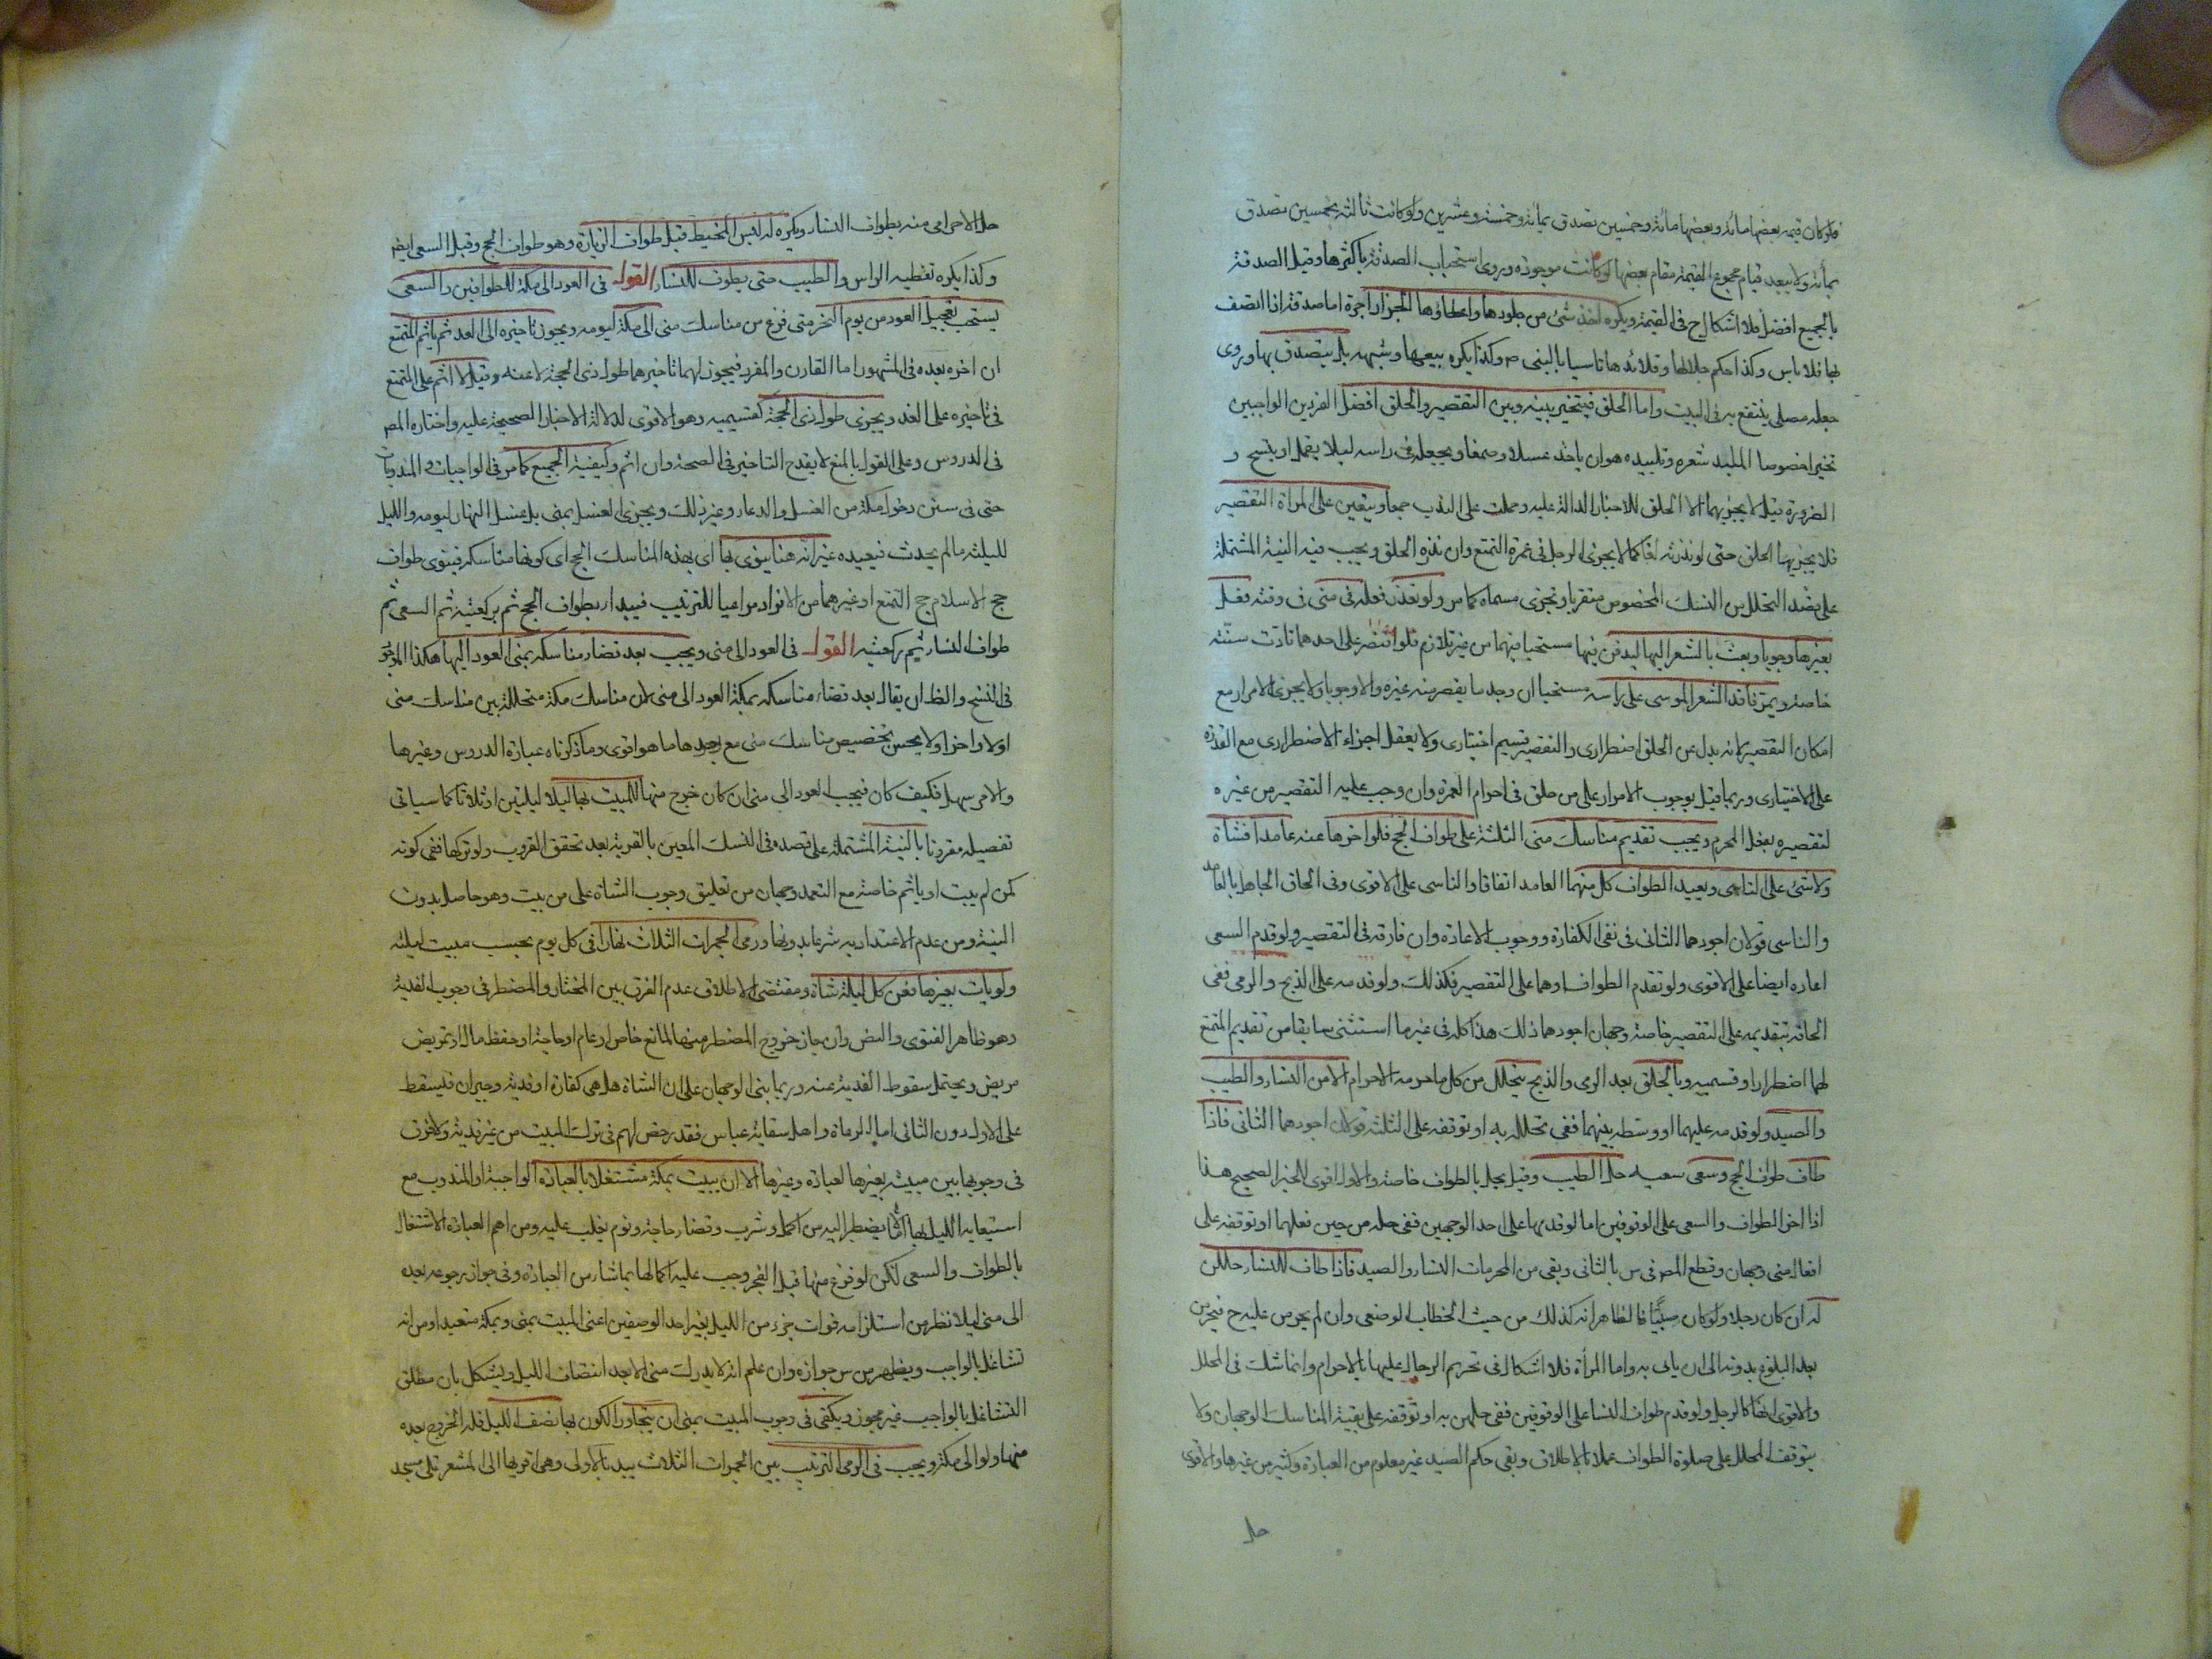 فلو كان قيمة بعضها مائة وبعضها مائة وخمسين تصدق بمائة وخمسة وعشرين ولو كانت ثالثة بخمسين تصدق
بمائة ولا يبعد قيام مجموع القيمة مقام بعضها لو كانت موجودة وروى استحباب الصدقة باكثرها وقيل الصدقة
بالجميع افضل فلا اشكال ح في القيمة ويكره اخذ شئ من جلودها واعطاؤها الجزار اجرة اما صدقة اذا اتصف
بها فلا باس وكذا حكم جلالها وقلائدها تاسيا بالنبى ص وكذا يكره بيعها وشبهه بل يتصدق بها وروى
جعله مصلى ينتفع به في البيت واما الحلق فيتخير بينه وبين التقصير والحلق افضل الفردين الواجبين
تخييرا خصوصا الملبد شعره وتلبيده هو ان ياخذ عسلا وصمغا ويجعله في راسه ليلا يقمل او يتسخ و
الضرورة قيل لا يجزيهما الا الحلق للاخبار الدالة عليه وحملت على الندب جمعا ويتعين على المراة التقصير
فلا يجزيها الحلق حتى لو نذرته لغا كما لا يجزى الرجل في عمرة التمتع وان نذره الحلق ويجب فيه النية المشتملة
على قصد التحلل من النسك المخصوص متقربا ويجزى مسماه كما مر ولو تعذر فعله في منى في وقته فعل
بغيرها وجوبا وبعث بالشعر اليها ليدفن فيها مستحبا فيهما من غير تلازم فلو اقتصر على احدهما تادت سنته
خاصة ويمر فاقد الشعر الموسى على راسه مستحبا ان وجد ما يقصر منه غيره والا وجوبا ولا يجزى الامرار مع
امكان التقصير لانه بدل عن الحلق اضطرارى والتقصير قسيم اختيارى ولا يعقل اجزاء الاضطرارى مع القدرة
على الاختيارى وربما قيل بوجوب الامرار على من حلق في احرام العمرة وان وجب عليه التقصير من غيره
لتقصيره بفعل المحرم ويجب تقديم مناسك منى الثلثة على طواف الحج فلو اخرها عنه عامدا فشاة
ولا شئ على الناسى ويعيد الطواف كل منهما العامد اتفاقا والناسى على الاقوى وفى الحاق الجاهل بالعامد
والناسى قولان اجودهما الثانى في نفى الكفارة ووجوب الاعادة وان فارقه في التقصير ولو قدم السعى
اعاده ايضا على الاقوى ولو تقدم الطواف او هما على التقصير فكذلك ولو قدمه على الذبح والرمى ففى
الحاقه بتقديمه على التقصير خاصة وجهان اجودهما ذلك هذا كله في غير ما استثنى سابقا من تقديم المتمتع
لهما اضطرارا وقسيميه وبالحلق بعد الرمى والذبح يتحلل من كل ما حرمه الاحرام الا من النساء والطيب
والصيد ولو قدمه عليهما او وسطه بينهما ففى تحلله به او توقفه على الثلثة قولان اجودهما الثانى فاذا
طاف طواف الحج وسعى سعيه حل الطيب وقيل يحل بالطواف خاصة والاول اقوى للخبر الصحيح هذا
اذا اخر الطواف والسعى على الوقوفين اما لو قدمهما على احد الوجهين ففى حله من حين فعلهما او توقفه على
افعال منى وجهان وقطع المص في س بالثانى وبقى من المحرمات النساء والصيد فاذا طاف للنساء حللن
له ان كان رجلا ولو كان صبيا فالظاهر انه كذلك من حيث الخطاب الوضعى وان لم يحرمن عليه ح فيحرمن
بعد البلوغ بدونه الى ان ياتى به واما المرأة فلا اشكال في تحريم الرجال عليها بالاحرام وانما الشك في المحلل
والاقوى انها كالرجل ولو قدم طواف النسا على الوقوفين ففى حلهن به او توقفه على بقية المناسك الوجهان ولا
يتوقف المحلل على صلوة الطواف عملا بالاطلاق وبقى حكم الصيد غير معلوم من العبارة وكثير من غيرها والاقوى
حل
حل الاحرامى منه بطواف النساء ويكره له لبس المخيط قبل طواف الزيارة وهو طواف الحج وقبل السعى ايض
وكذا يكره تغطية الراس والطيب حتى يطوف للنساء القول في العود الى مكة للطوافين والسعى
يستحب تعجيل العود من يوم النحر متى فرغ من مناسك منى الى مكة ليومه ويجوز تاخيره الى الغد ثم ياثم المتمتع
ان اخره بعده في المشهور اما القارن والمفرد فيجوز لهما تاخيرهما طول ذى الحجة لا عنه وقيل لا اثم على المتمتع
في تاخيره على الغد ويجزى طول ذى الحجة كقسيميه وهو الاقوى لدلالة الاخبار الصحيحة عليه واختاره المص
في الدروس وعلى القول بالمنع لا يقدح التاخير في الصحة وان اثم وكيفية الجميع كما مر في الواجبات والمندوبات
حتى في سنن دخول مكة من الغسل والدعاء وغير ذلك ويجزى الغسل بمنى بل غسل النهار ليومه والليل
لليلته ما لم يحدث فيعيده غير انه هنا ينوى بها اى بهذه المناسك الحج اى كونها مناسكه فينوى طواف
حج الاسلام حج التمتع او غيرهما من الافراد مراعيا للترتيب فيبدا بطواف الحج ثم بركعتيه ثم السعى ثم
طواف النساء ثم ركعتيه القول في العود الى منى ويجب بعد قضاء مناسكه بمنى العود اليها هكذا الموجود
في النسخ والظ ان يقال بعد قضاء مناسكه بمكة العود الى منى لان مناسك مكة متخللة بين مناسك منى
اولا واخرا ولا يحسن تخصيص مناسك منى مع بعدها ما هو اقوى وما ذكرناه عبارة الدروس وغيرها
والامر سهل فكيف كان فيجب العود الى منى ان كان خرج منها للمبيت بها ليلا ليلتين او ثلاثا كما سياتى
تفصيله مقرونا بالنية المشتملة على قصده في النسك المعين بالقربة بعد تحقق الغروب ولو تركها ففى كونه
كمن لم يبت او ياثم خاصة مع التعمد وجهان من تعليق وجوب الشاة على من يبت وهو حاصل بدون
النية ومن عدم الاعتداد به شرعا بدونها ورمى الجمرات الثلاث نهارا في كل يوم يجب مبيت ليلته
ولو بات بغيرها فعن كل ليلة شاة ومقتضى الاطلاق عدم الفرق بين المختار والمضطر في وجوب الفدية
وهو ظاهر الفتوى والنص وان جاز خروج المضطر منها لمانع خاص او عام او حاجة او حفظ مال او تمريض
مريض ويحتمل سقوط الفدية عنه وربما بنى الوجهان على ان الشاة هل هى كفارة او فدية وجبران فيسقط
على الاول دون الثانى اما الرعاة واهل سقاية عباس فقد رخص لهم في ترك المبيت من غير فدية ولا فرق
في وجوبها بين مبيته بغيرها لعبادة وغيرها الا ان يبيت بمكة مشتغلا بالعبادة الواجبة او المندوب مع
استيعابه الليل بها الا ما يضطر اليه من اكل وشرب وقضاء حاجة ونوم يغلب عليه ومن اهم العبادة الاشتغال
بالطواف والسعى لكن لو فرغ منها قبل الفجر وجب عليه اكمالها بما شاء من العبادة وفى جواز رجوعه بعده
الى منى ليلا نظر من استلزامه فوات جزء من الليل بغير احد الوصفين اعنى المبيت بمنى وبمكة متعبدا ومن انه
تشاغل بالواجب ويظهر من س جوازه وان علم انه لا يدرك منى الا بعد انتصاف الليل ويشكل بان مطلق
التشاغل بالواجب غير مجوز ويكفى في وجوب المبيت بمنى ان يتجاوز الكون بها نصف الليل فله الخروج بعده
منها ولو الى مكة ويجب في الرمى الترتيب بين الجمرات الثلاث يبدا بالاولى وهى اقربها الى المشعر تلى مسجد